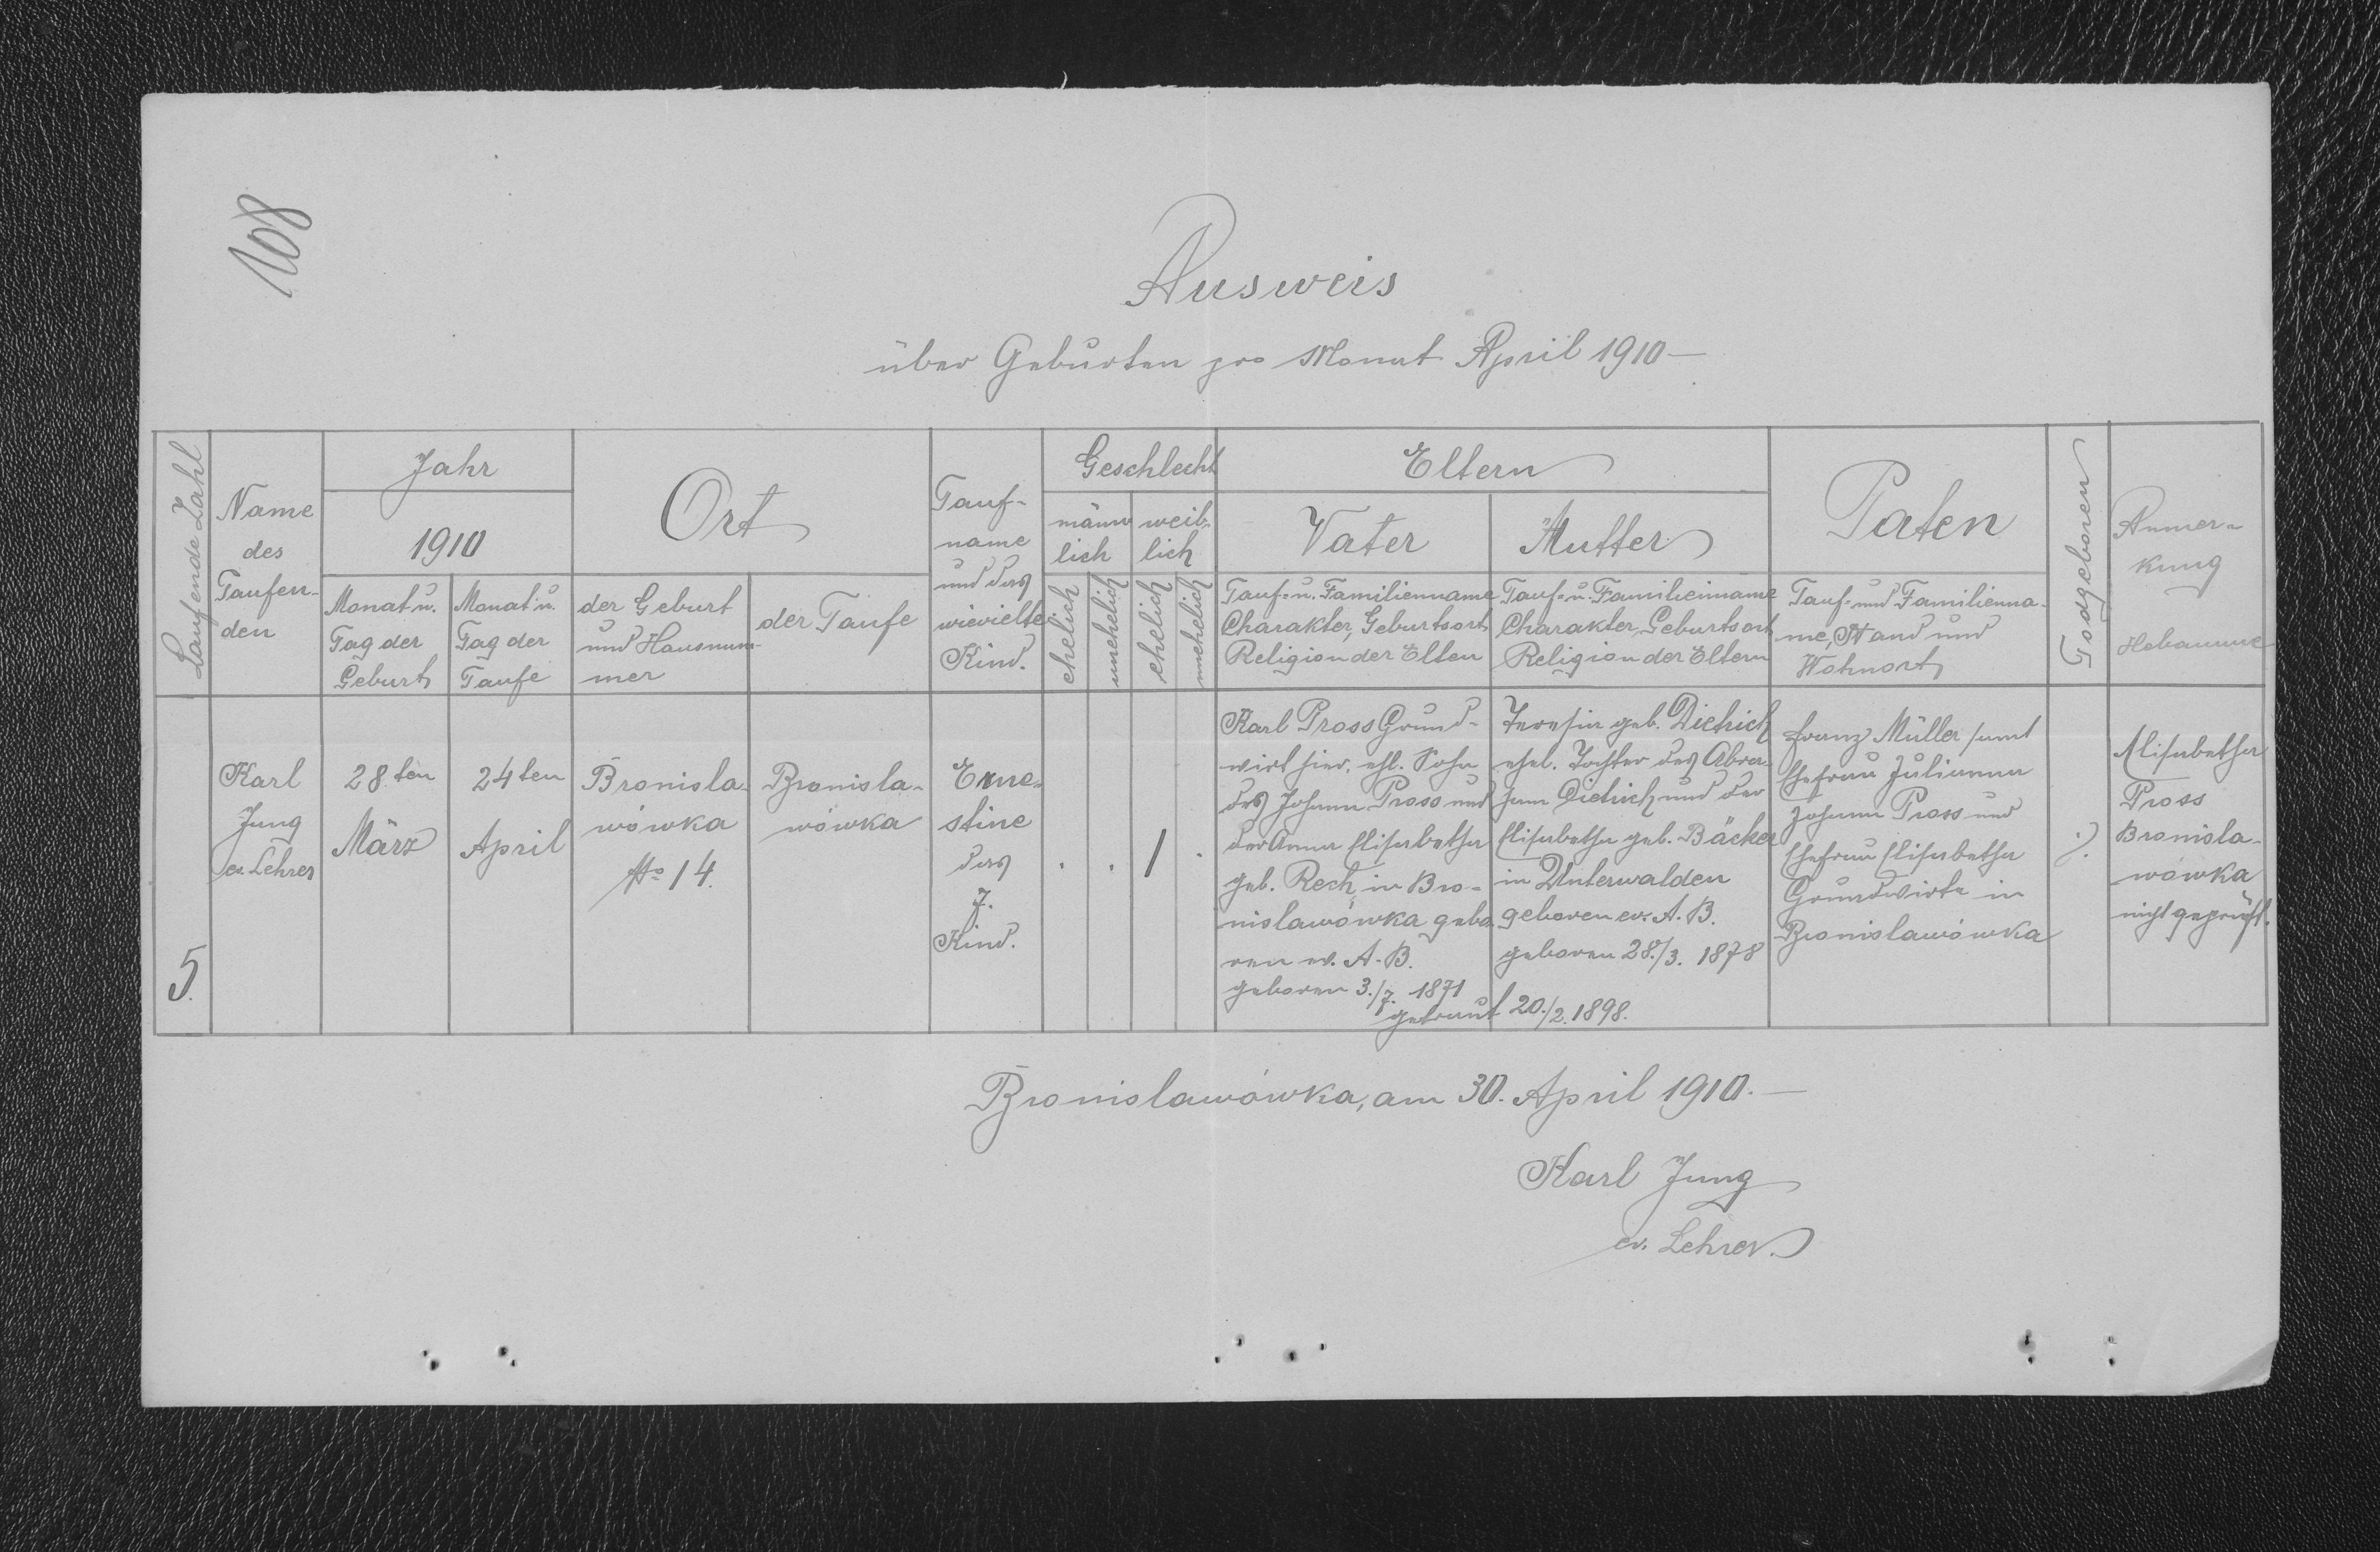 108
Ausweis
über Geburten pro Monat April 1910 —
Laufende Zahl
Name
des
Taufen-
den
Jahr
1910
Monat u.
Tag der
Geburt
Monat u.
Tag der
Taufe
Ort
der Geburt
und Hausnum-
mer
der Taufe
Tauf-
name
und das
wievielte
Kind.
Geschlecht
männ
lich
weib-
lich
ehelich
unehelich
ehelich
unehelich
Eltern
Vater
Mutter
Tauf- u. Familienname
Charakter, Geburtsort
Religion der Elten
Tauf- u. Familienname
Charakter, Geburtsort
Religion der Eltern
Paten
Tauf- und Familienna-
me, Stand und
Wohnort
Todgeboren
Anmer-
kung
Hebamme
5.
Karl
Jung
ev. Lehrer
28.ten
März
24ten
April
Bronisla-
wówka
No 14.
Bronisla-
wówka
Erne-
stine
das
7.
Kind.
. . 1 .
Karl Pross Grund-
wirt hier, ehl. Sohn
des Johann Pross und
der Anna Elisabetha
geb. Rech, in Bro-
nislawówka gebo-
ren ev. A. B.
geboren 3./7. 1871
Teresia geb. Dietrich
ehel. Tochter des Abra-
ham Dietrich und der
Elisabetha geb. Bäcker
in Unterwalden
geboren ev. A. B.
geboren 28./3. 1878
getraut 20./2. 1898.
Franz Müller samt
Ehefrau Julianna
Johann Pross und
Ehefrau Elisabetha
Grundwirte in
Bronislawówka
Elisabetha
Pross
Bronisla-
wówka
nicht geprüft.
Bronislawówka, am 30. April 1910. —
Karl Jung
ev. Lehrer.